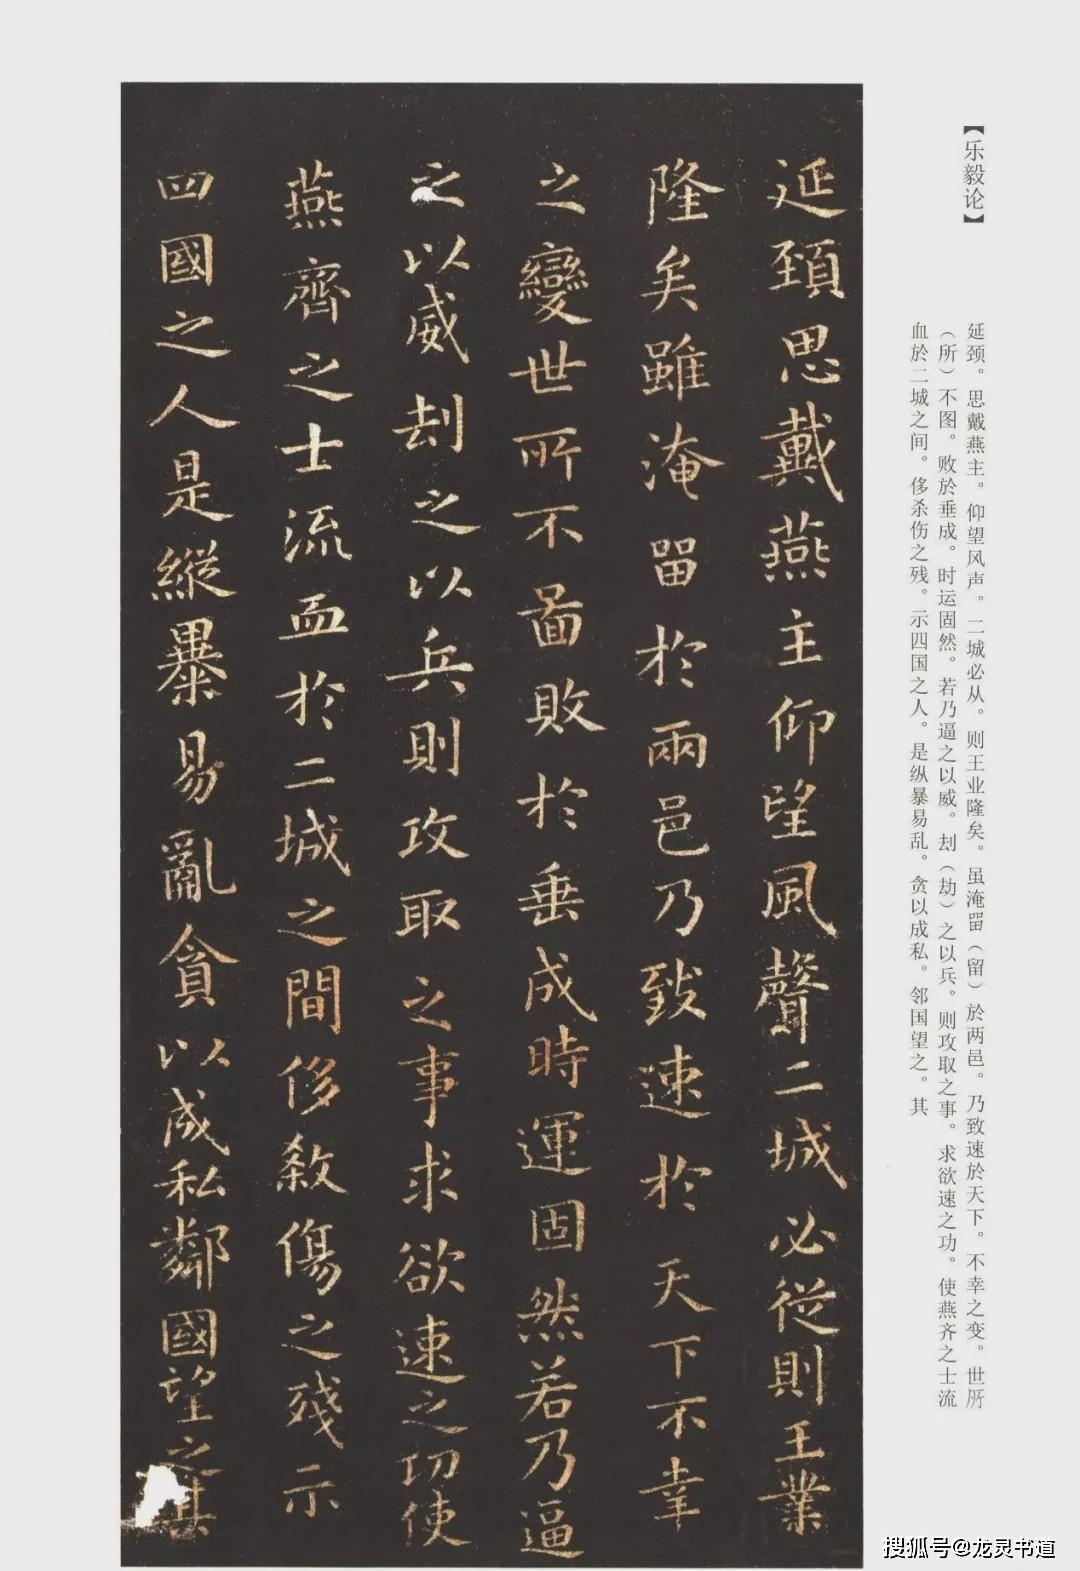 【乐毅论】
延颈。思戴燕主。仰望风声。二城必从。则王业隆矣。虽淹畱（留）於两邑。乃致速於天下。不幸之变。世所
（所）不图。败於垂成。时运固然。若乃逼之以威。刦（劫）之以兵。则攻取之事。求欲速之功。使燕齐之士流
血於二城之间。侈杀伤之残。示四国之人。是纵暴易乱。贪以成私。邻国望之。其
延頸思戴燕主仰望風聲二城必從則王業
隆矣雖淹畱於兩邑乃致速於天下不幸
之變世所不圖敗於垂成時運固然若乃逼
之以威刦之以兵則攻取之事求欲速之功使
燕齊之士流血於二城之間侈殺傷之殘示
四國之人是縱暴易亂貪以成私鄰國望之其
搜狐号@龙灵书道